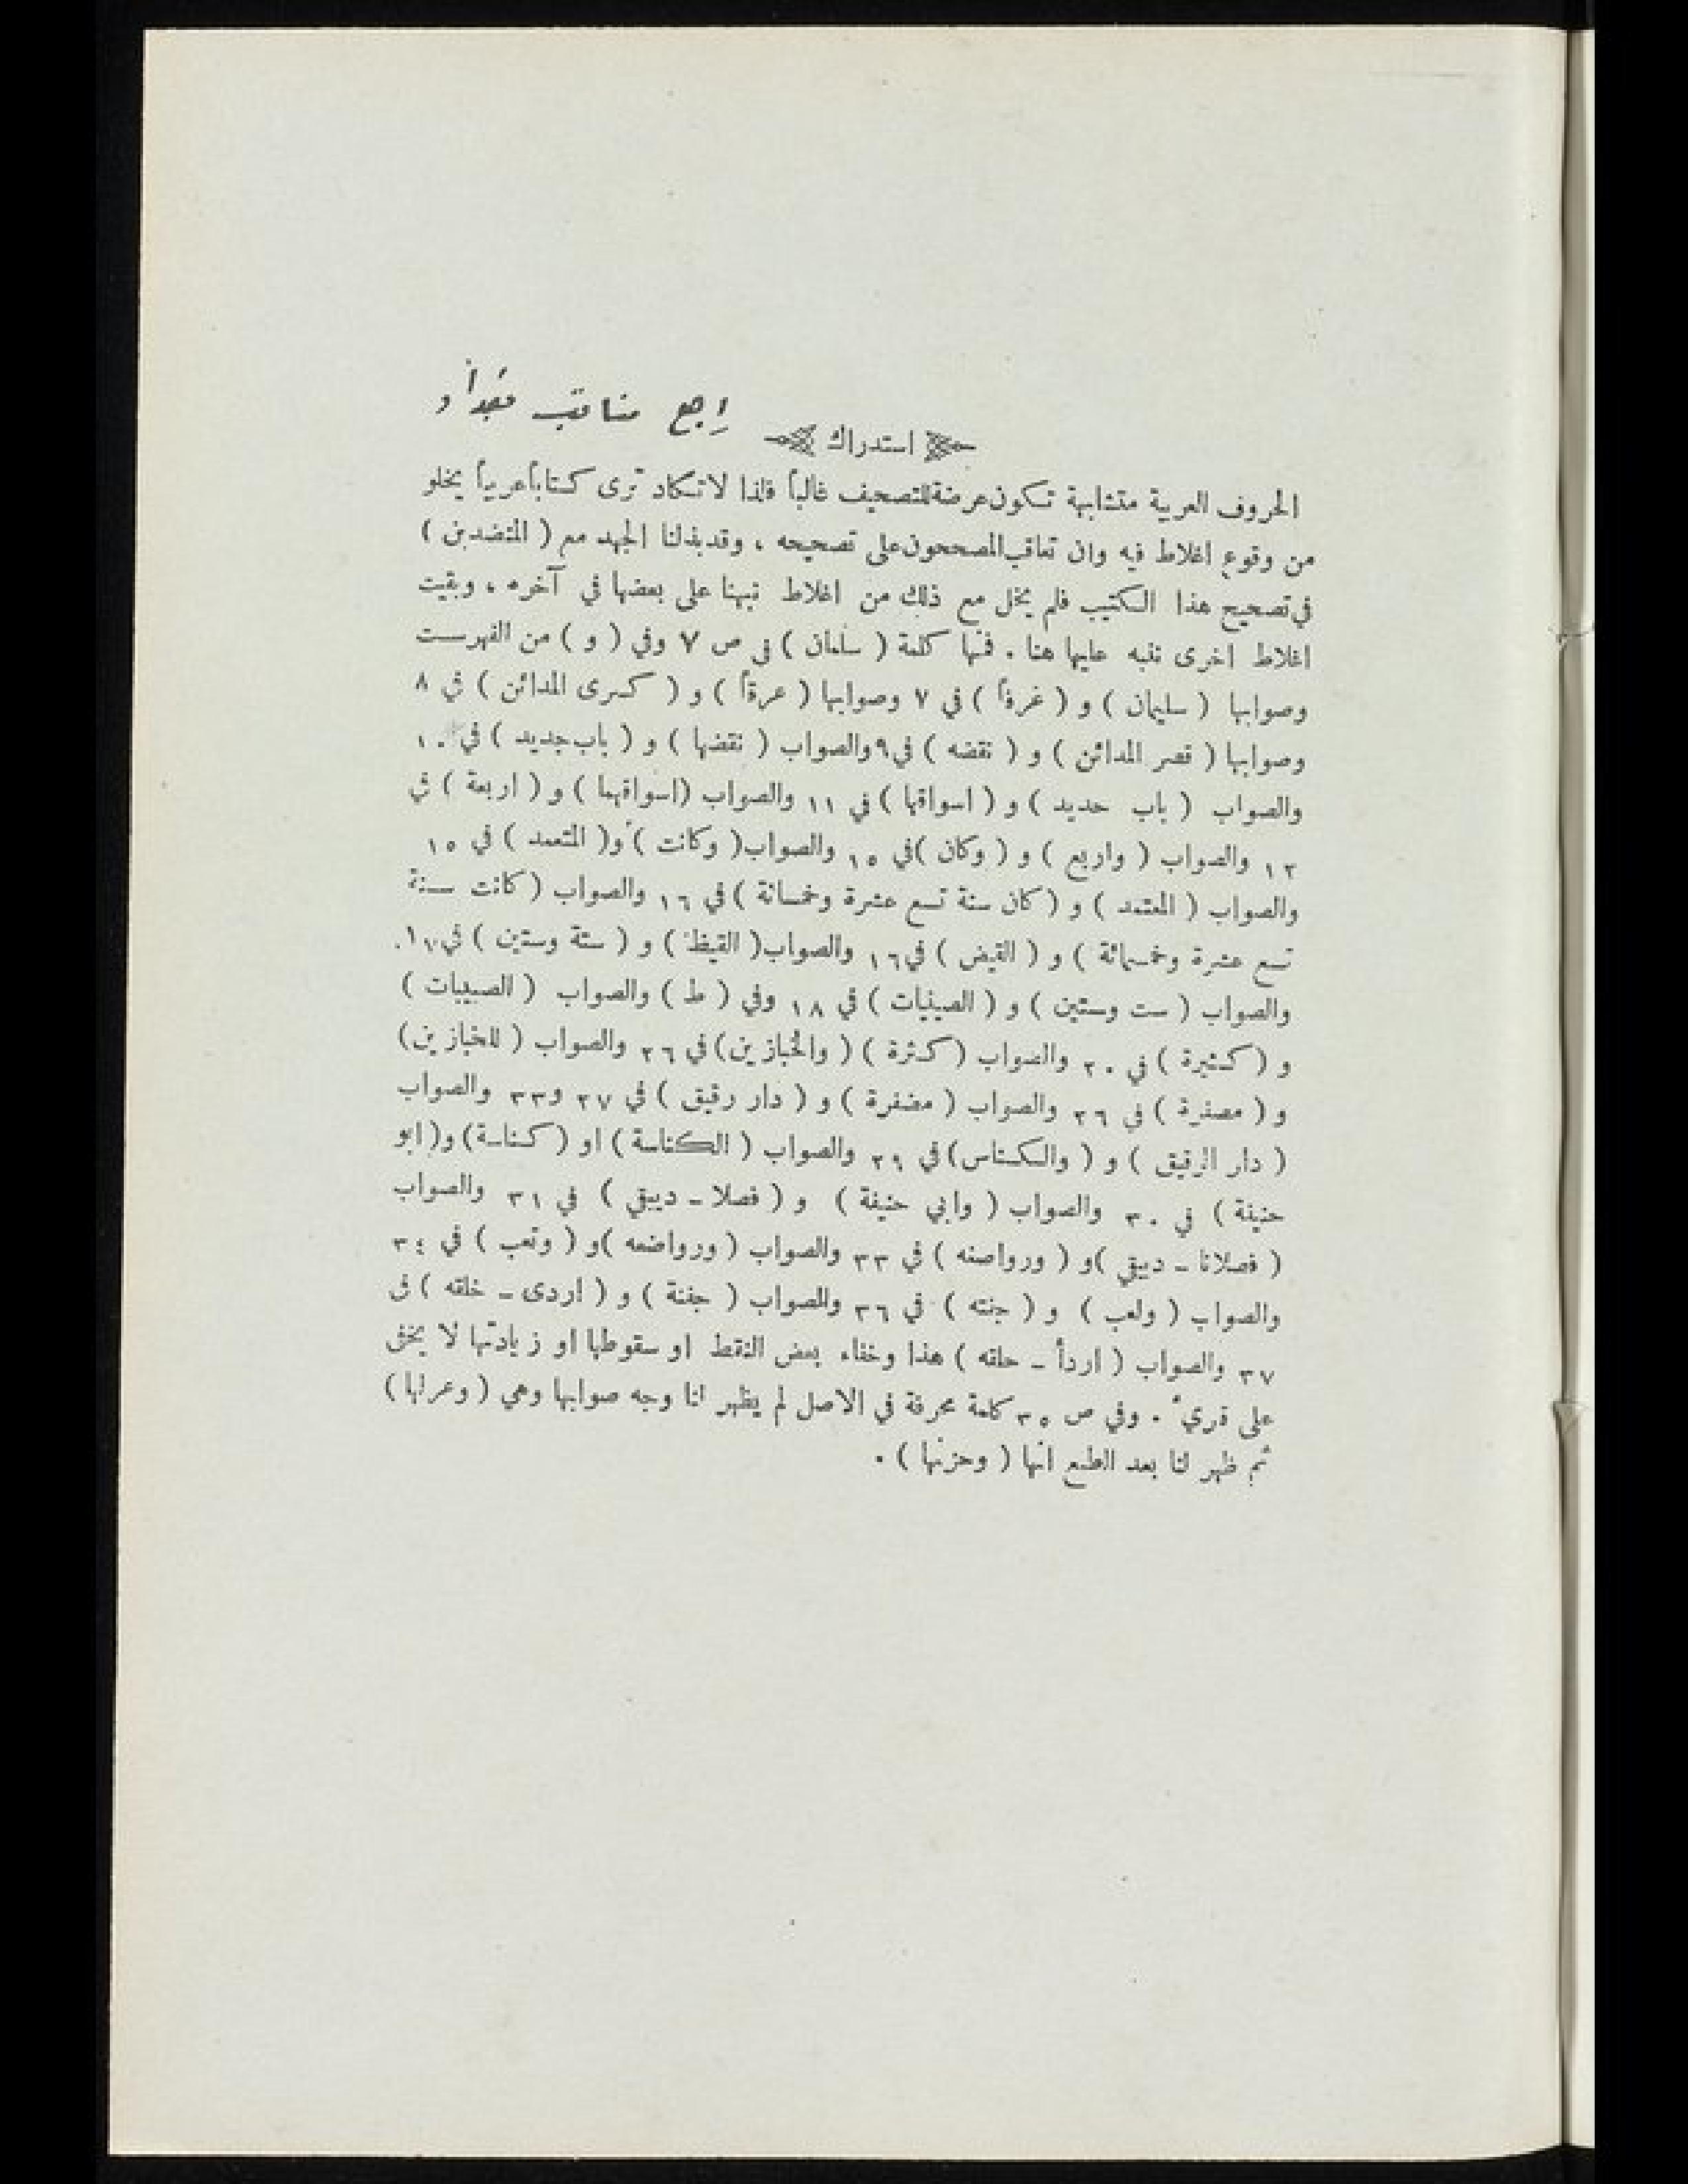 راجع مناقب بغداد
استدراك
الحروف العربية متشابهة تكون عرضة للتصحيف غالباً فلذا لا تكاد ترى كتاباً عربياً يخلو
من وقوع اغلاط فيه وان تعاقب المصححون على تصحيحه ، وقد بذلنا الجهد مع ( المنضدين )
في تصحيح هذا الكتيب فلم يخل مع ذلك من اغلاط نبهنا على بعضها في آخره ، وبقيت
اغلاط اخرى ننبه عليها هنا . فمنها كلمة ( سلمان ) في ص ٧ وفي ( و ) من الفهرست
وصوابها ( سليمان ) و ( غرفاً ) في ٧ وصوابها ( عرةاً ) و ( كسرى المدائن ) في ٨
وصوابها ( قصر المدائن ) و ( نقضه ) في ٩ والصواب ( نقضها ) و ( باب جديد ) في ١٠
والصواب ( باب حديد ) و ( اسواقها ) في ١١ والصواب (اسواقهما ) و ( اربعة ) في
١٢ والصواب ( واربع ) و ( وكان )في ١٥ والصواب( وكانت ) و( المتعمد ) في ١٥
والصواب ( المعتمد ) و ( كان سنة تسع عشرة وخمسائة ) في ١٦ والصواب ( كانت سنة
تسع عشرة وخمسمائة ) و ( القيض ) في ١٦ والصواب( القيظ ) و ( ستة وستين ) في ١٧
والصواب ( ست وستين ) و ( الصينيات ) في ١٨ وفي ( ط ) والصواب ( الصبيبات )
و ( كثيرة ) في ٢٠ والصواب ( كثرة ) ( والخبازين) في ٢٦ والصواب ( للخبازين)
و ( مصفرة ) في ٢٦ والصواب ( مضفرة ) و ( دار رقيق ) في ٢٧ و٣٣ والصواب
( دار الرقيق ) و ( والكستاس) في ٢٩ والصواب ( الكناسة ) او ( كناسة) و( ابو
حنيفة ) في ٣٠ والصواب ( وابي حنيفة ) و ( فصلا - ديبقي ) في ٣١ والصواب
( فصلانا - دبيقي )و ( ورواصنه ) في ٣٣ والصواب ( ورواضعه )و ( وتعب ) في ٣٤
والصواب ( ولعب ) و ( جنته ) في ٣٦ والصواب ( جفنة ) و ( اردى - خلقه ) في
٣٧ والصواب ( اردأ - حلقه ) هذا وخفاء بعض النقط او سقوطها او زيادتها لا يخفى
على قاريء . وفي ص ٣٥ كلمة محرفة في الاصل لم يظهر لنا وجه صوابها وهي ( وعرلها )
ثم ظهر لنا بعد الطبع انها ( وحزنها ) .